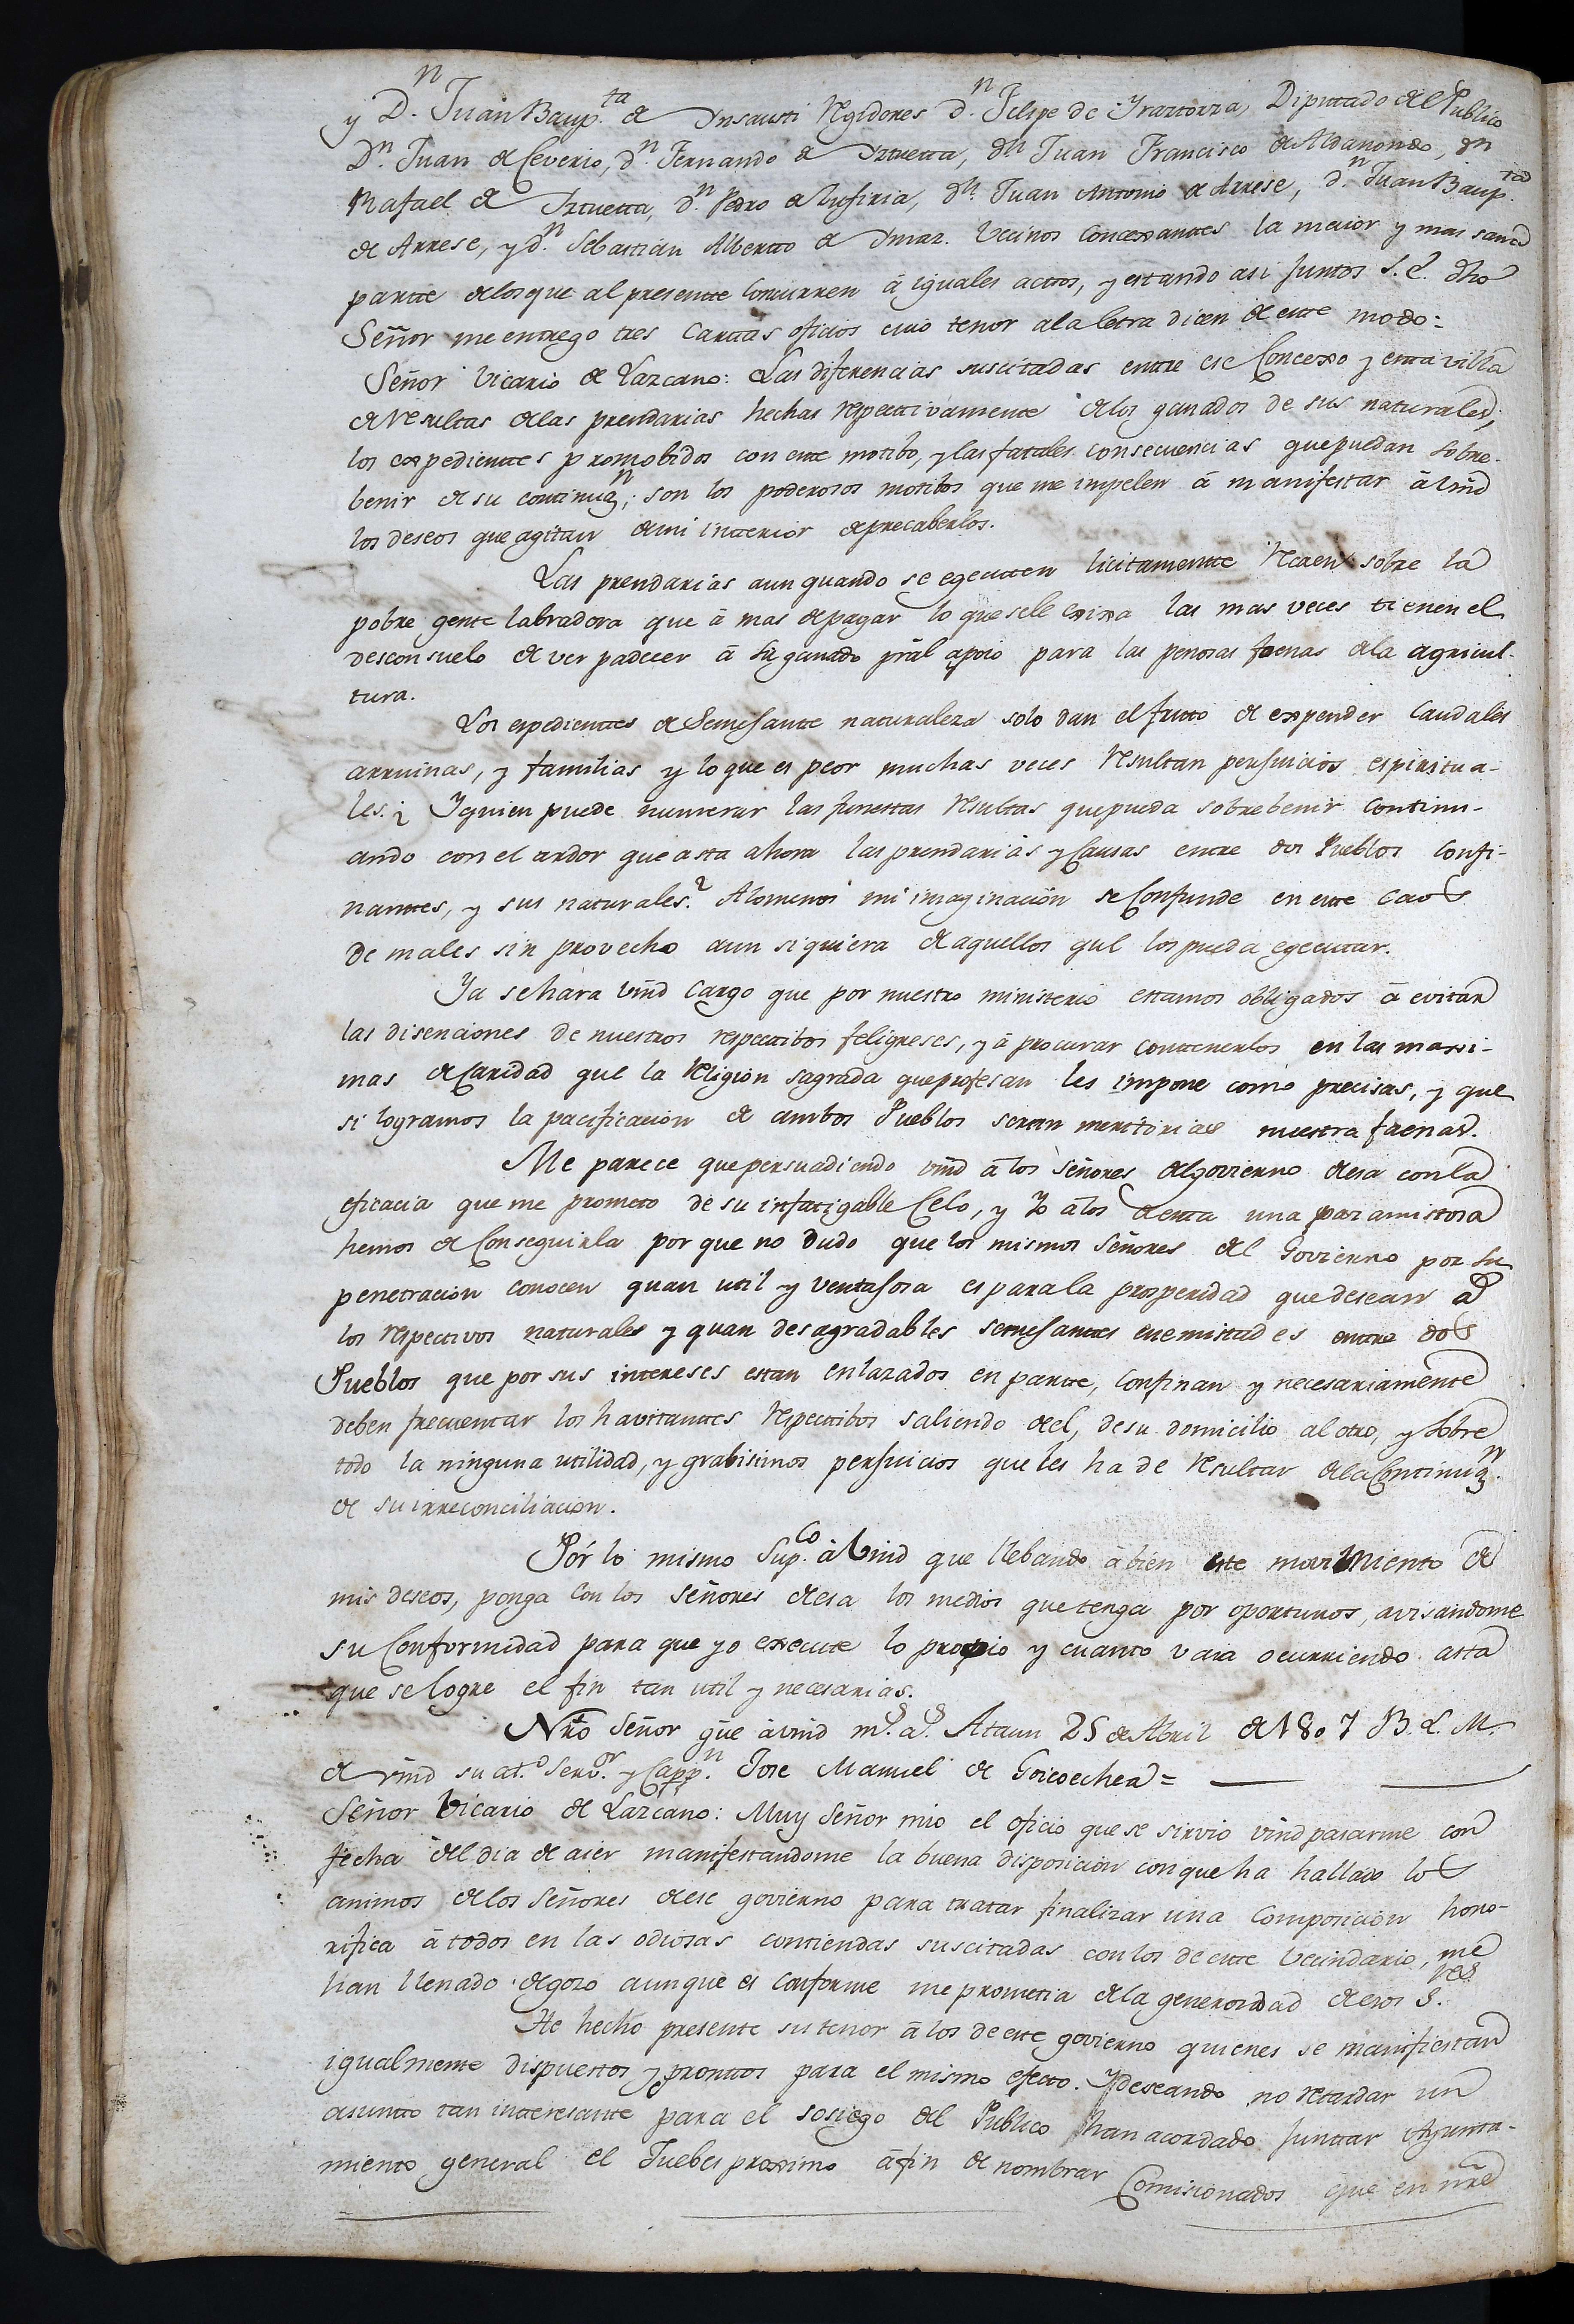 y D.n Juan Baup.ta de Insausti Regidores d.n Felipe de Yraztorza, Diputado del Publico
D.n Juan de Ceverio, d.n Fernando de Iztuetta, dn Juan Francisco de Aldanondo, dn
Rafael de Iztuetta, d.n Pedro de Zufiria, dn Juan Antonio de Arrese, d.n Juan Baup.ta
de Arrese, y d.n Sebastian Albertto de Imaz. Vecinos Concexantes la maior y mas sana
partte de los que al presentte Concurren â iguales acttos, y estando asi juntos S.E. dho
Señor me entrego tres Carttas oficios cuio tenor a la letra dicen de este modo:
Señor Vicario de Lazcano: Las diferencias suscitadas entre ese Concexo y esta villa
de resultas de las prendarias hechas respecttivamente de los ganados de sus naturales;
los expedienttes promobidos con este motibo, y las fatales consecuencias que puedan sobre-
benir de su continuaz.n; son los poderosos motibos que me impelen â manifestar â Vmd
los deseos que agitan de mi intterior de precaberlos.
Las prendarias aun quando se egecutten licitamentte recaen sobre la
pobre gente labradora que â mas de pagar lo que se le exixa las mas veces tienen el
desconsuelo de ver padecer â su ganado pral apoio para las penosas faenas de la agricul-
tura.
Los espedienttes de Semejantte naturaleza solo dan el frutto de expender Caudales
arruinas, y familias y lo que es peor muchas veces resultan perjuicios espiritua-
les. ¿ Y quien puede numerar las funestas resultas que pueda sobrebenir continu-
ando con el ardor que asta ahora las prendarias y Causas entre dos Pueblos Confi-
nanttes, y sus naturales? Alomenos mi imaginacion se Confunde en este caos
de males sin provecho aun siquiera de aquellos que los pueda egecutar.
Ya se hara Vmd cargo que por nuestro ministerio estamos obligados â evitar
las disenciones de nuestros respecttibos feligreses, y â procurar conttenerlos en las maxi-
mas de Caridad que la Religion sagrada que profesan les impone como precisas, y que
si logramos la pacificacion de ambos Pueblos seran meritorias nuestra faenas.
Me parece que persuadiendo vmd â los señores del govierno de esa con la
eficacia que me prometo de su infatigable Celo, y Yo â los de esta una paz amistosa
hemos de Conseguirla por que no dudo que los mismos Señores del Govierno por su
penetracion conocen quan util y ventajosa es para la prosperidad que desean a
los respectivos naturales y quan desagradables semejantes enemistades entre dos
Pueblos que por sus intereses estan enlazados en partte, Confinan y necesariamente
deben frecuentar los havitanttes respecttibos saliendo del, de su domicilio al otro, y sobre
todo la ninguna utilidad, y grabisimos perjuicios que les ha de resultar de la Continuaz.n
de su irreconciliacion.
Pór lo mismo Sup.co â Vmd que llebando â bien este movimiento de
mis deseos, ponga Con los Señores de esa los medios que tenga por oportunos, avisandome
su Conformidad para que yo executte lo propio y cuanto vaia ocurriendo asta
que se logre el fin tan util y necesarias.
Nrô Señor gûe â vmd m.s a.s Ataun 25 de Abril de 1807 B.L.M.
de vmd su at.o Serv.or y Capp.n Jose Manuel de Goicoechea =
Señor Vicario de Lazcano: Muy Señor mio el oficio que se sirvio vmd pasarme con
fecha del dia de aier manifestandome la buena disposicion con que ha hallado los
animos de los Señores de ese govierno para tratar finalizar una Composicion hono-
rifica â todos en las odiosas contiendas suscitadas con los de este Vecindario, me
han llenado de gozo aunque es conforme me prometia de la generosidad de esos S.res
He hecho presente su tenor â los de este govierno quienes se manifiestan
igualmente dispuestos y pronttos para el mismo efecto. Y deseando no retardar un
asuntto tan intteresante para el sosiego del Publico han acordado junttar Ayunta-
miento general el Juebes proximo â fin de nombrar Comisionados que en nrê